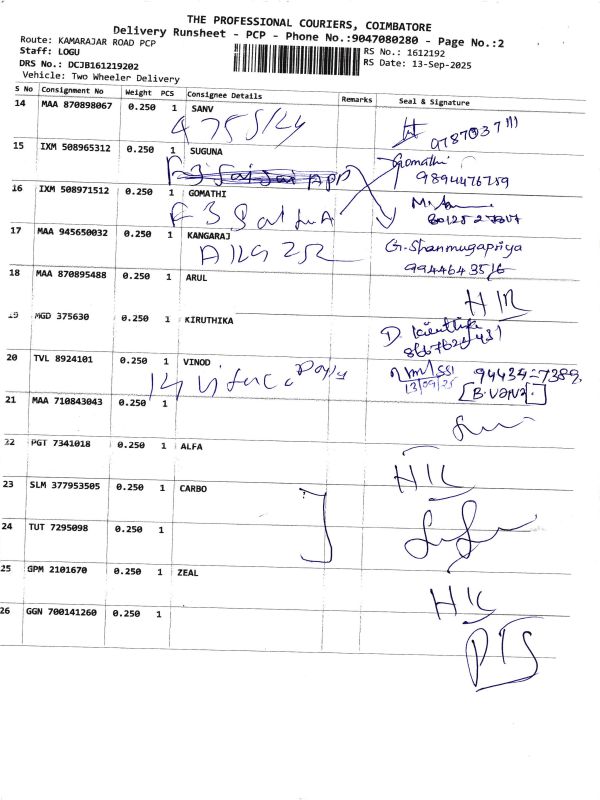 THE PROFESSIONAL COURIERS, COIMBATORE
Delivery Runsheet - PCP - Phone No.:9047080280 - Page No.:2
Route: KAMARAJAR ROAD PCP
RS No.: 1612192
Staff: LOGU
RS Date: 13-Sep-2025
DRS No.: DCJB161219202
Vehicle: Two Wheeler Delivery
S No Consignment No Weight PCS Consignee Details Remarks Seal & Signature
14 MAA 870898067 0.250 1 SANV
15 IXM 508965312 0.250 1 SUGUNA
Gomathi
9894476759
16 IXM 508971512 0.250 1 GOMATHI
17 MAA 945650032 0.250 1 KANGARAJ
G. Shanmugapriya
9944643516
18 MAA 870895488 0.250 1 ARUL
19 MGD 375630 0.250 1 KIRUTHIKA
20 TVL 8924101 0.250 1 VINOD
13/09/25
21 MAA 710843043 0.250 1
22 PGT 7341018 0.250 1 ALFA
23 SLM 377953505 0.250 1 CARBO
24 TUT 7295098 0.250 1
25 GPM 2101670 0.250 1 ZEAL
26 GGN 700141260 0.250 1